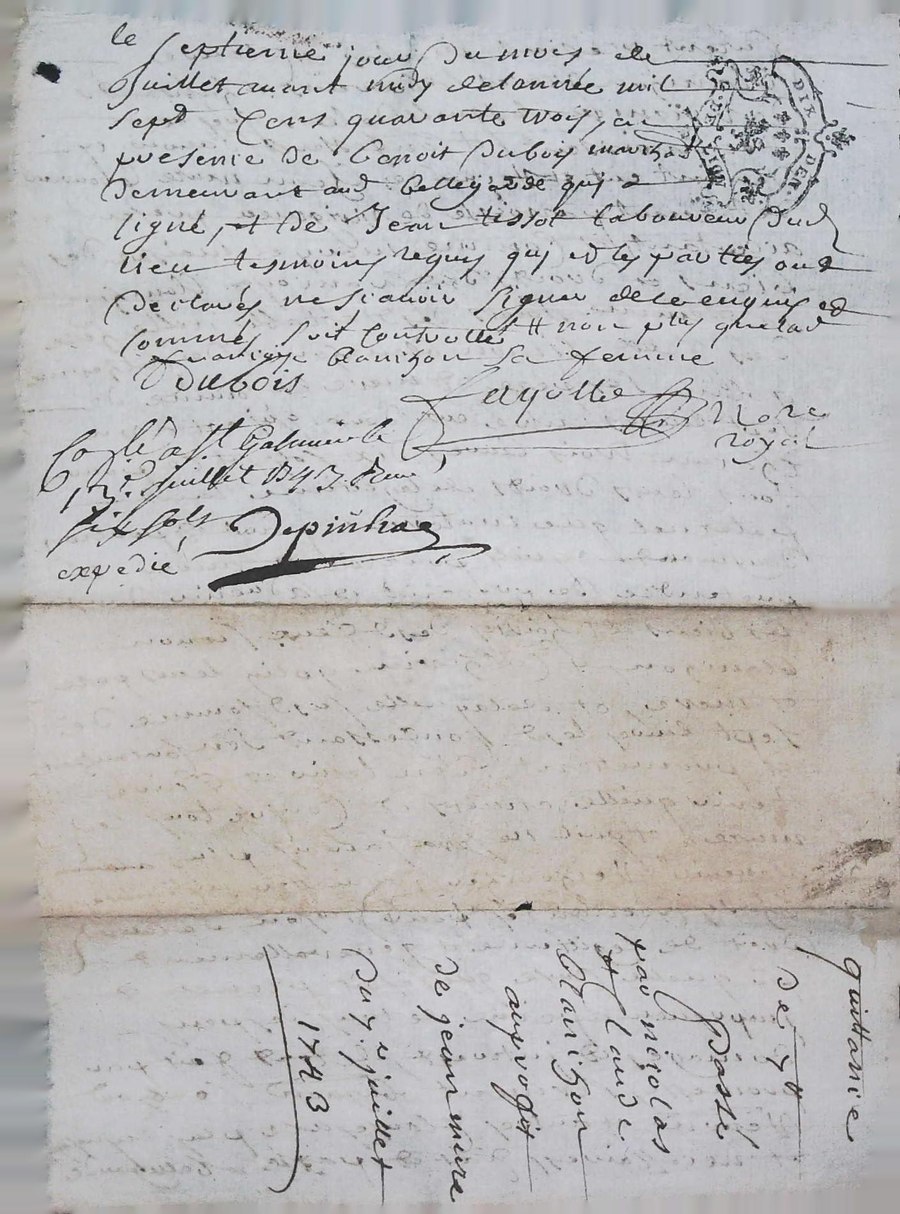 le septieme jour du mois de
Juillet avant midy de lannée mil
sept Cens quarante trois, en
presence de benoit duboy marchad
demeurant aud bellegarde qui a
signé, et de Jean tissot laboureur dud
lieu tesmoins requis qui et les parties ont
declarés ne scavoir signer de ce enquis et
sommés soit Controllé # non plus que lad
blanchon sa femme
DUBOIS
Fayolle Nore
royal
Conlé a St Galmier le
13e Juillet 1743 Receu
six sols
expedié
DIX DEN
quittance
de 7#
passé
par nicolas
et Claude
blanchon
au profit
de jean mure
Du 7e juillet
1743